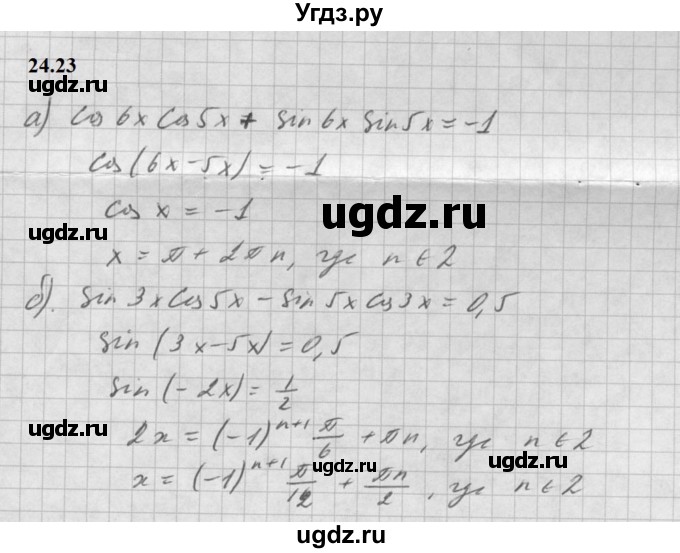 Угдз.ру
24.23
ugdz.ru
а) cos 6x cos 5x + sin 6x sin 5x = -1
cos(6x - 5x) = -1
ugdz.ru
cos x = -1
ugdz.ru
x = π + 2πn, где n ∈ Z
б). sin 3x cos 5x - sin 5x cos 3x = 0,5
sin(3x - 5x) = 0,5
sin(-2x) = 1/2
ugdz.ru
2x = (-1)^(n+1) π/6 + πn, где n ∈ Z
ugdz.ru
ugdz.ru
x = (-1)^(n+1) π/12 + πn/2, где n ∈ Z
ugdz.ru
ugdz.ru